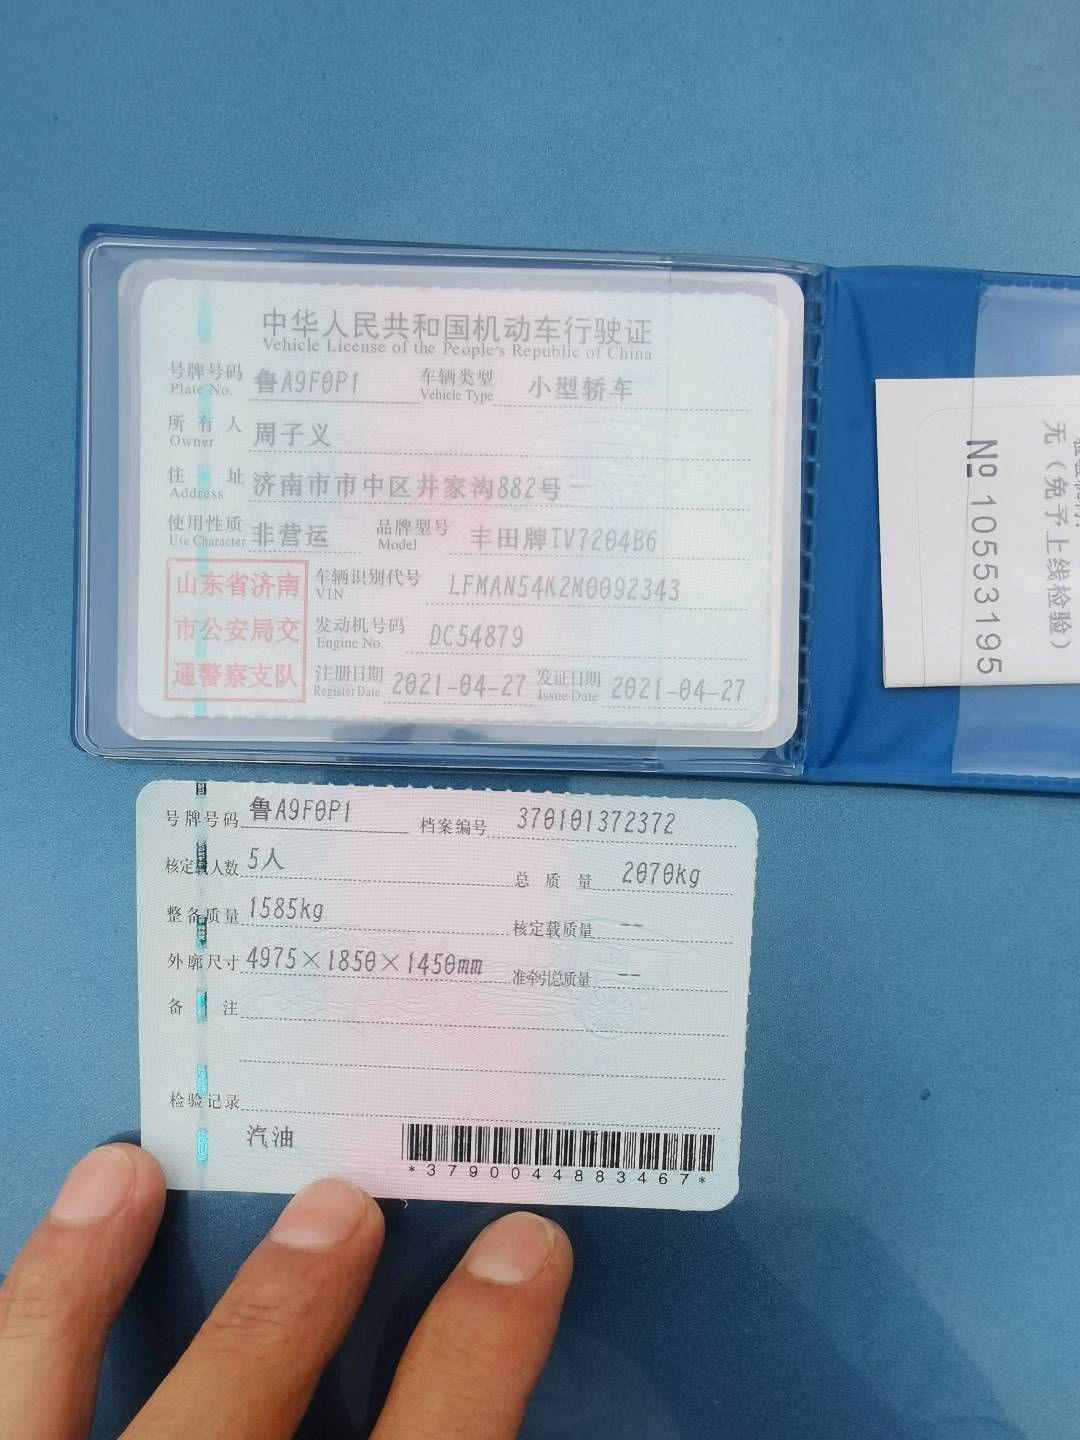 中华人民共和国机动车行驶证
Vehicle License of the People's Republic of China
号牌号码 Plate No. 鲁A9F0P1 车辆类型 Vehicle Type 小型轿车
所有人 Owner 周子义
住址 Address 济南市市中区井家沟882号
使用性质 Use Character 非营运 品牌型号 Model 丰田牌TV7204B6
山东省济南
市公安局交
通警察支队
车辆识别代号 VIN LFMAN54K2M0092343
发动机号码 Engine No. DC54879
注册日期 Register Date 2021-04-27 发证日期 Issue Date 2021-04-27
号牌号码 鲁A9F0P1 档案编号 370101372372
核定载人数 5人 总质量 2070kg
整备质量 1585kg 核定载质量 --
外廓尺寸 4975×1850×1450mm 准牵引总质量 --
备注
检验记录
汽油
*3790044883467*
无（免予上线检验）
№ 10553195